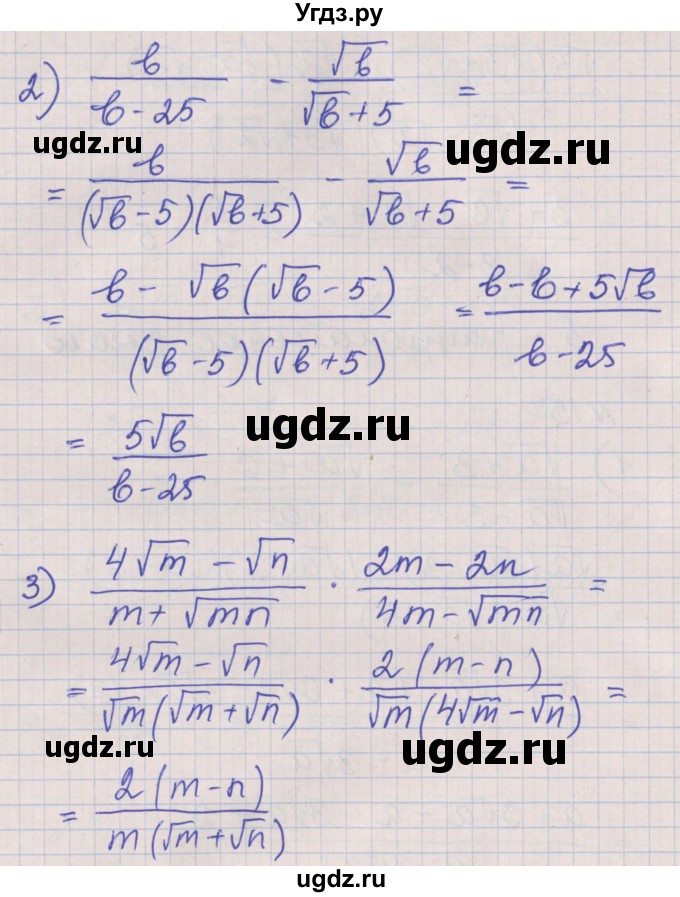 Угдз.ру
2) b/(b-25) - √b/(√b+5) =
ugdz.ru ugdz.ru
= b/((√b-5)(√b+5)) - √b/(√b+5) =
= (b-√b(√b-5))/((√b-5)(√b+5)) = (b-b+5√b)/(b-25)
ugdz.ru
= 5√b/(b-25)
3) (4√m-√n)/(m+√mn) · (2m-2n)/(4m-√mn) =
= (4√m-√n)/(√m(√m+√n)) · 2(m-n)/(√m(4√m-√n)) =
ugdz.ru ugdz.ru
= 2(m-n)/(m(√m+√n))
ugdz.ru